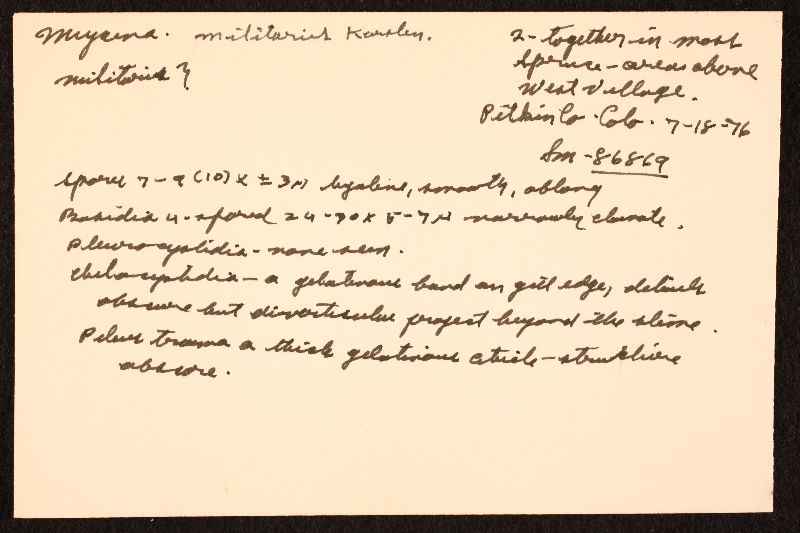 Mycena. militaris Karsten.
militaris?
2- together in moss
Spruce - areas above
West Village.
Pitkin Co. Colo. 7-18-76
Sm - 86869
Spores 7-9 (10) X ± 3 µ hyaline, smooth, oblong
Basidia 4-spored 24-30 X 5-7 µ narrowly clavate.
Pleurocystidia - none seen.
Cheilocystidia - a gelatinous band on gill edge, details
obscure but diverticulae project beyond the slime.
Pileus trama a thick gelatinous cuticle - structure
obscure.